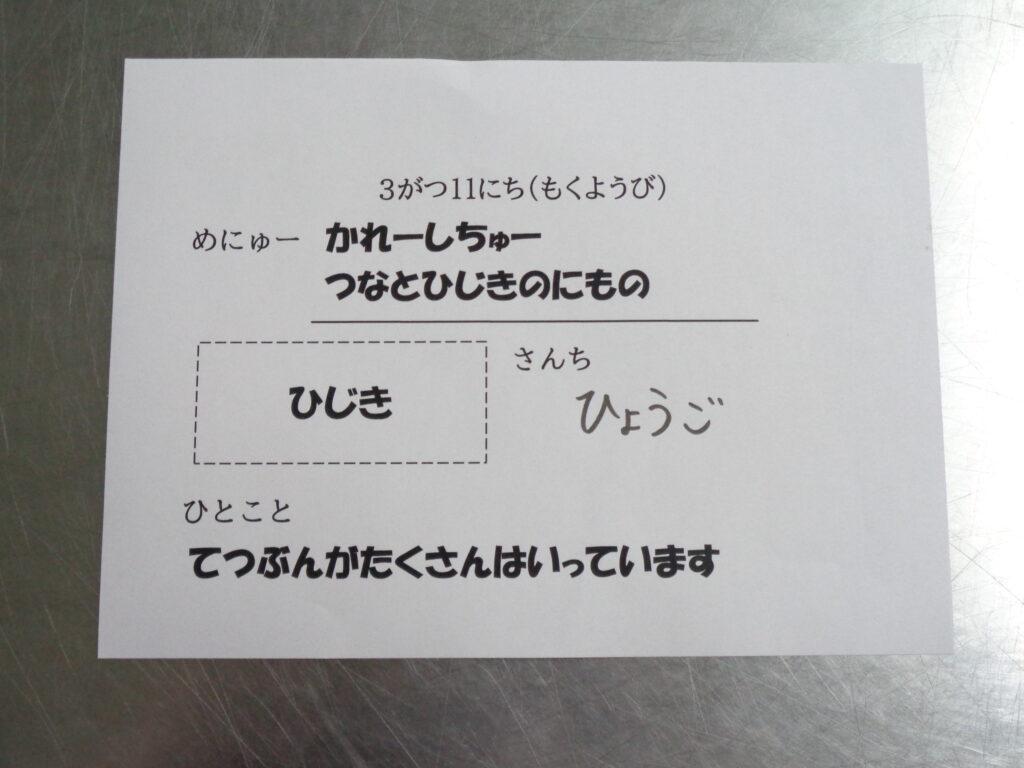 3がつ11にち(もくようび)
めにゅー かれーしちゅー
つなとひじきのにもの
さんち
ひじき ひょうご
ひとこと
てつぶんがたくさんはいっています